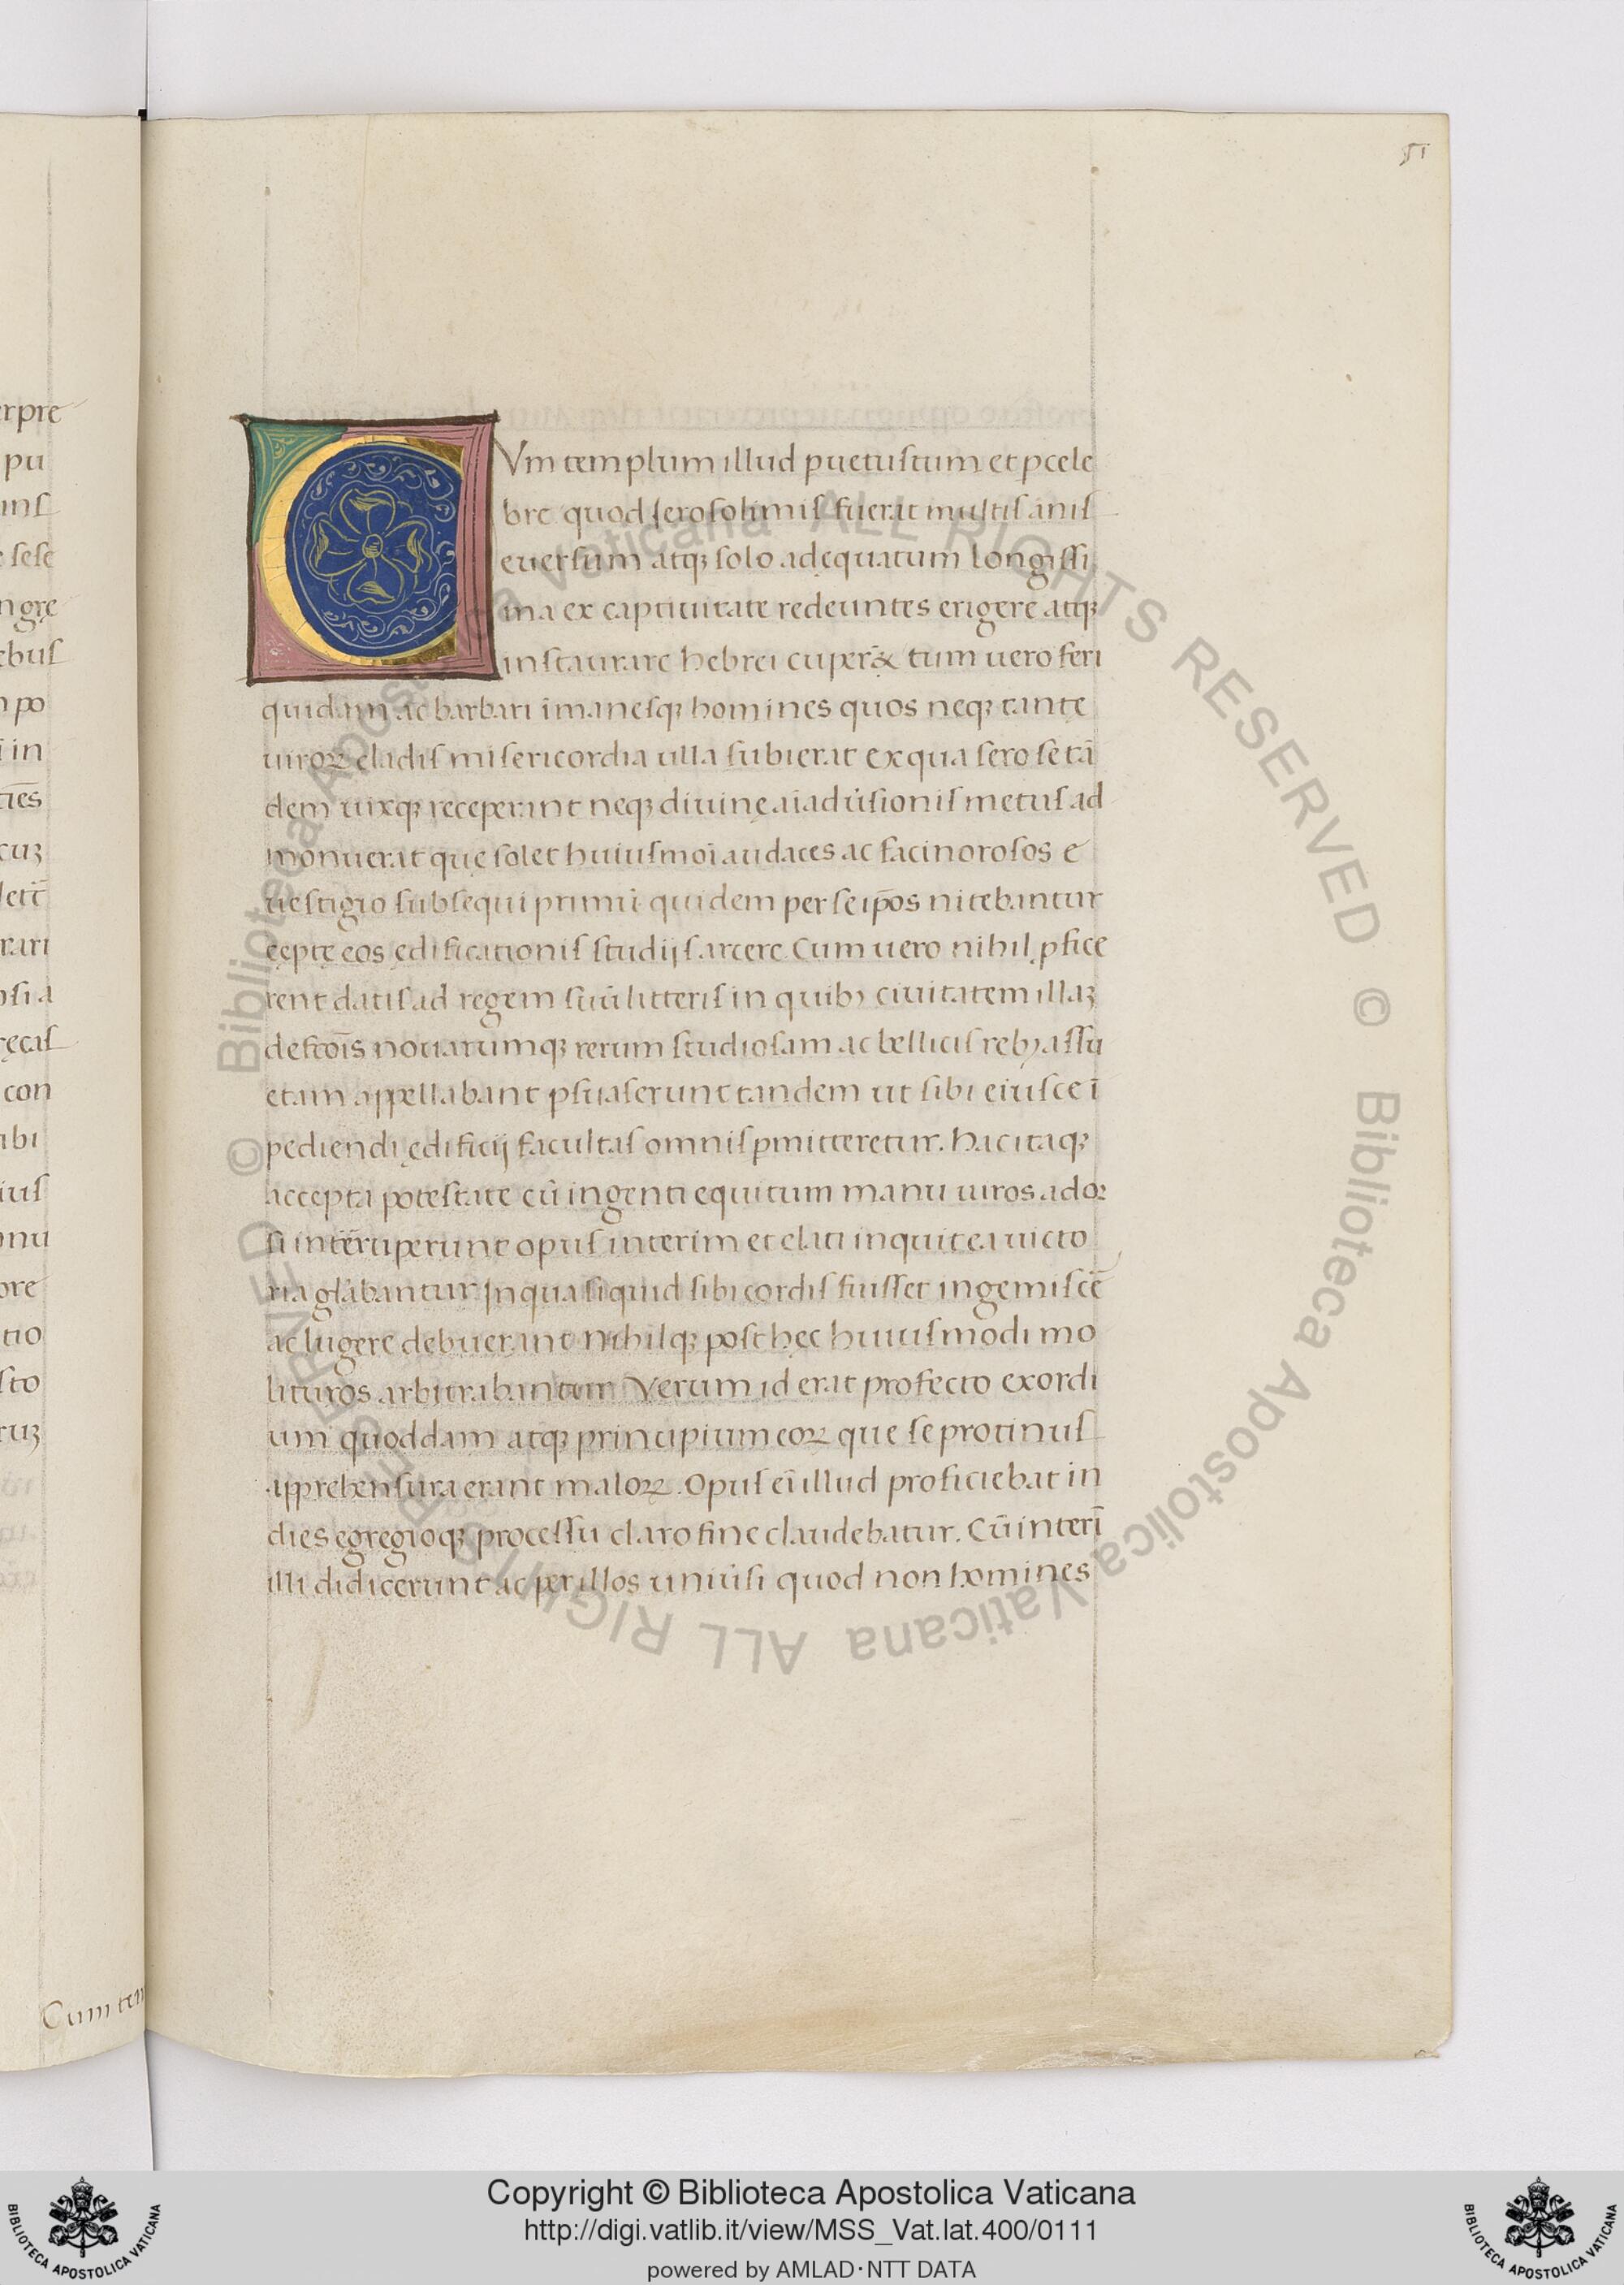 51
CVm templum illud puetustum et pcele
bre quod Jerosolimis fuerat multis ānis
euersum atqꝫ solo adequatum longissi
ma ex captiuitate redeuntes erigere atqꝫ
instaurare hebrei cuper& tum uero feri
quidam ac barbari īmanesqꝫ homines quos neqꝫ tante
uiroꝝ cladis misericordia ulla subierat ex qua sero se tā
dem uixqꝫ receperant neqꝫ diuinę aīaduersionis metus ad
monuerat quę solet huiusmoī audaces ac facinorosos e
uestigio subsequi primū quidem per se ip̄os nitebantur
cęptę eos ędificationis studijs arcere. Cum uero nihil ꝓfice
rent datis ad regem suū litteris in quibꝫ ciuitatem illaꝫ
defectiōis nouarumqꝫ rerum studiosam ac bellicis rebꝫ assu
etam appellabant ꝑsuaserunt tandem ut sibi eiusce ī
pediendi ędificij facultas omnis ꝑmitteretur. hac itaqꝫ
accepta potestate cū ingenti equitum manu uiros ador
si intērruperunt opus interim et elati inquit ea uicto
ria gl̄abantur Jn qua si quid sibi cordis fuisset ingemiscē
ac lugere debuerant Nihilqꝫ post hęc huiusmodi mo
lituros arbitrabantur Verum id erat profecto exordi
um quoddam atqꝫ principium eoꝝ quę se protinus
apprehensura erant maloꝝ. Opus eī illud proficiebat in
dies egregioqꝫ processu claro fine claudebatur. Cū interī
illi didicerunt ac per illos uniūsi quod non homines
erpre
pu
sese
ngrę
ebus
po
in
cuꝫ
rari
con
ibi
ius
nu
ore
tio
sto
ruꝫ
Cum tem
© Biblioteca Apostolica Vaticana ALL RIGHTS RESERVED © Biblioteca Apostolica Vaticana ALL RIGHTS RESERVED
Copyright © Biblioteca Apostolica Vaticana
http://digi.vatlib.it/view/MSS_Vat.lat.400/0111
powered by AMLAD·NTT DATA
BIBLIOTECA APOSTOLICA VATICANA
BIBLIOTECA APOSTOLICA VATICANA